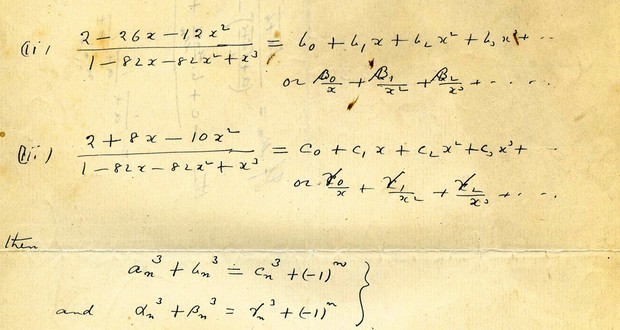 (ii) (2 − 26x − 12x²)/(1 − 82x − 82x² + x³) = b₀ + b₁x + b₂x² + b₃x³ + ···
or β₀/x + β₁/x² + β₂/x³ + ····
(iii) (2 + 8x − 10x²)/(1 − 82x − 82x² + x³) = c₀ + c₁x + c₂x² + c₃x³ + ··
or γ₀/x + γ₁/x² + γ₂/x³ + ····
then
aₙ³ + bₙ³ = cₙ³ + (−1)ⁿ }
and αₙ³ + βₙ³ = γₙ³ + (−1)ⁿ